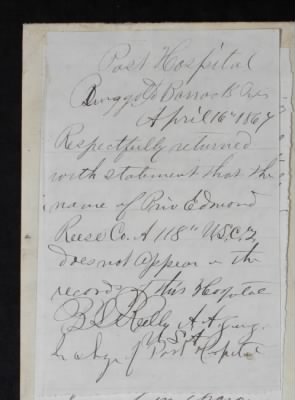 Post Hospital
Ringgold Barracks Texas
April 16th 1867
Respectfully returned
with statement that the
name of Priv Edmond
Reese Co. A 118th U.S.C.T.
does not appear on the
records of this Hospital
Reilly A. A. Surg.
U.S.A.
In chge of Post Hospital